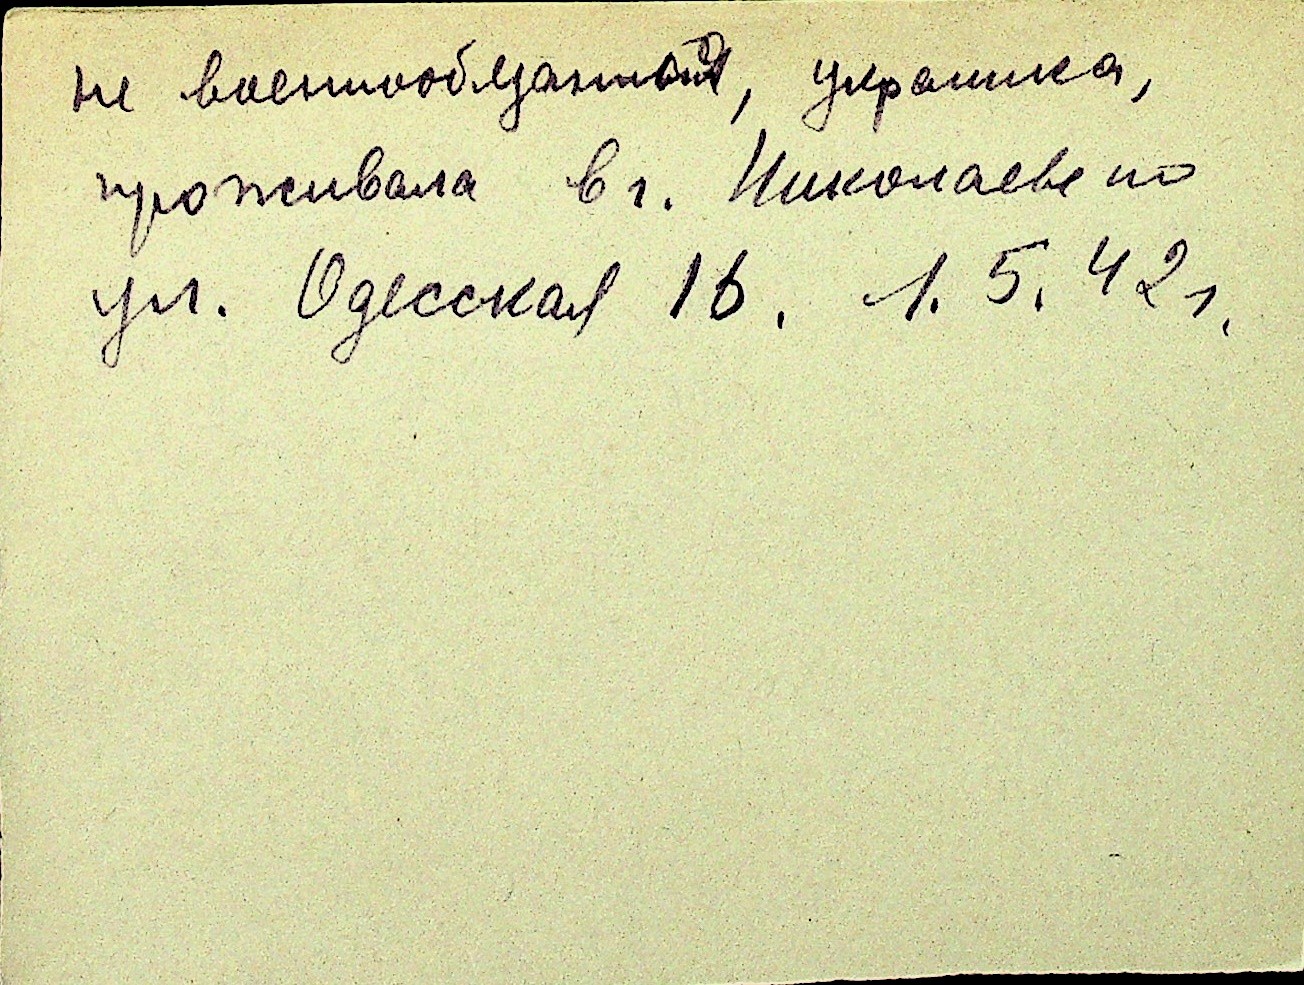 не военнообязанная, украинка,
проживала в г. Николаеве по
ул. Одесская 16. 1. 5. 42 г.